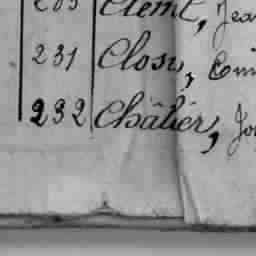 Clémt, Jea
231 Closu, Emi
232 Châlier, Jo